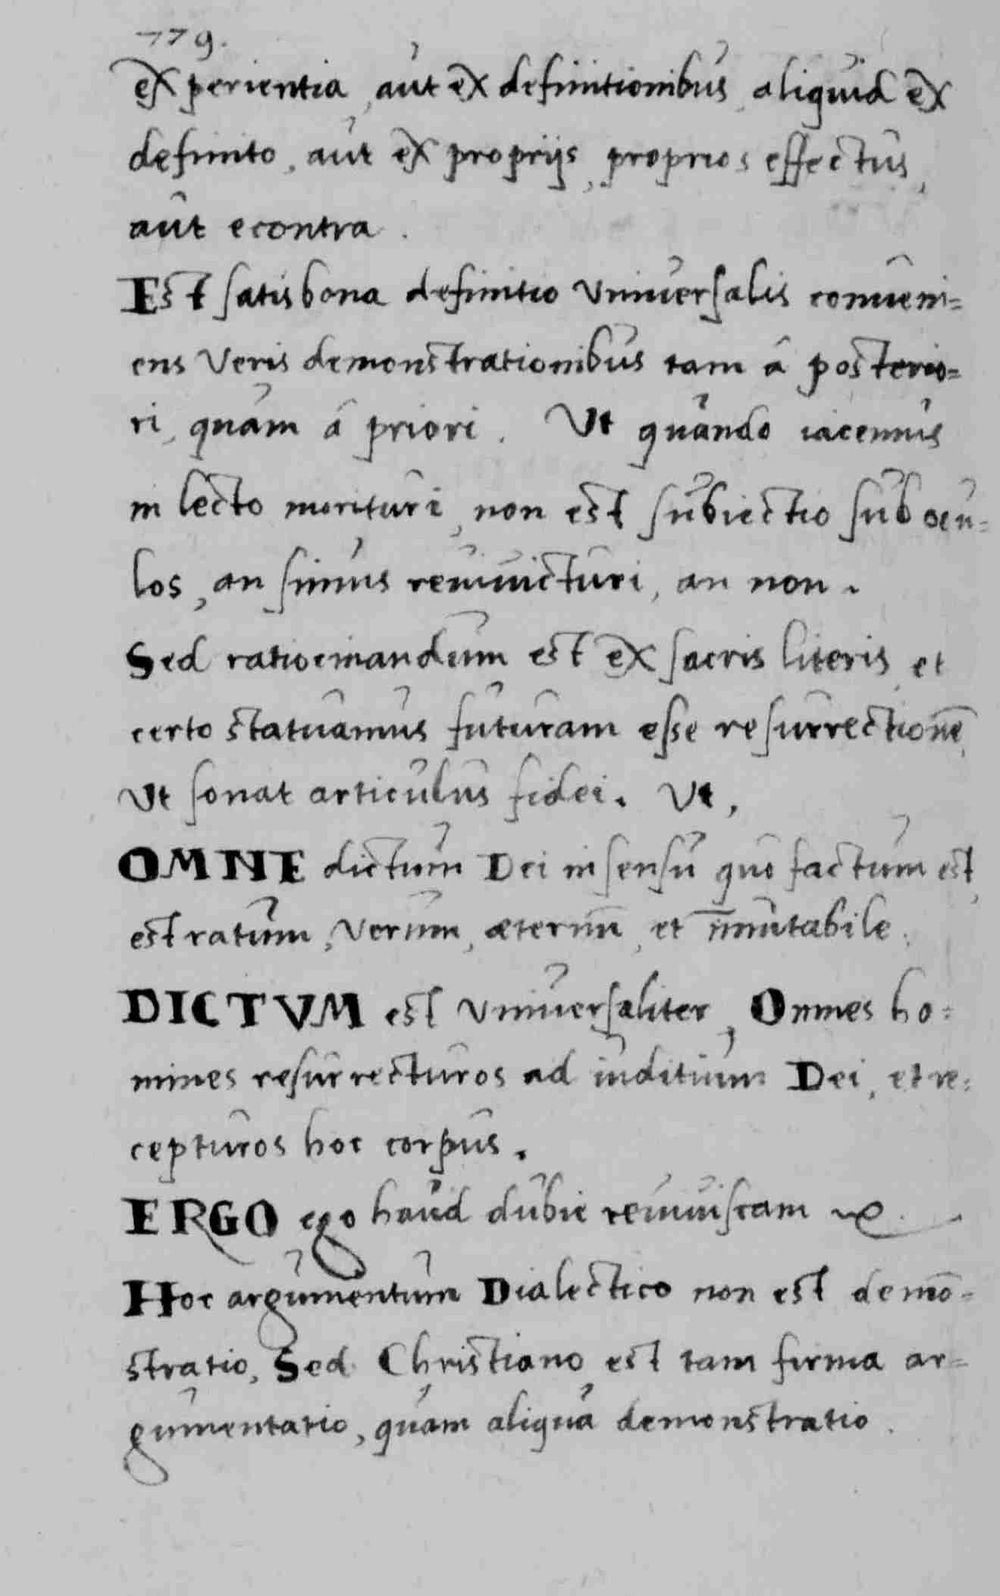 779.
experientia, aut ex definitionibus aliquid ex
definito, aut ex proprijs, proprios effectus,
aut econtra.
Est satis bona definitio Vniuersalis conueni=
ens Veris demonstrationibus tam à posterio=
ri, quam à priori. Vt quando iacemus
in lecto morituri, non est subiectio sub ocu=
los, an simus reuuicturi, an non.
Sed ratiocinandum est ex sacris literis, et
certo statuamus futuram esse resurrectionē,
Vt sonat articulus fidei. Vt,
OMNE dictum Dei in sensu quo factum est,
est ratum, Verum, æternū, et im̄utabile.
DICTVM est Vniuersaliter, Omnes ho=
mines resurrecturos ad iuditium Dei, et re=
cepturos hoc corpus.
ERGO ego haud dubie reuiuiscam
Hoc argumentum Dialectico non est demō=
stratio, Sed Christiano est tam firma ar=
gumentatio, quam aliqua demonstratio.